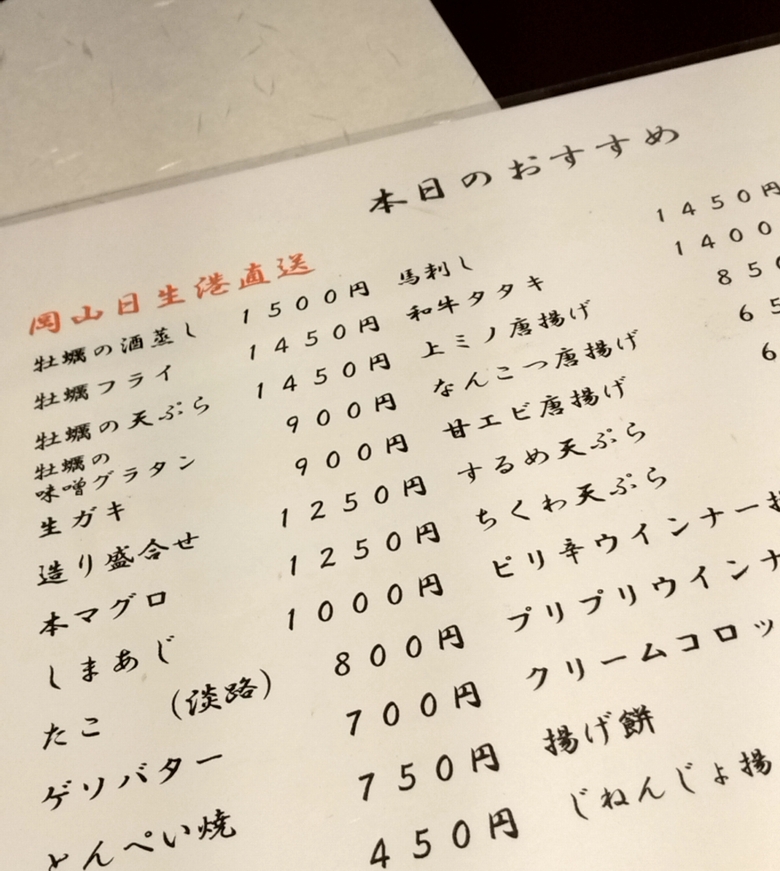 本日のおすすめ
岡山日生港直送
牡蠣の酒蒸し 1500円
牡蠣フライ 1450円
牡蠣の天ぷら 1450円
牡蠣の
味噌グラタン 900円
生ガキ 900円
造り盛合せ 1250円
本マグロ 1250円
しまあじ 1000円
たこ (淡路) 800円
ゲソバター 700円
とんぺい焼 750円
450円
馬刺し 1450円
和牛タタキ 1400
上ミノ唐揚げ 850
なんこつ唐揚げ 65
甘エビ唐揚げ 6
するめ天ぷら
ちくわ天ぷら
ピリ辛ウインナー
プリプリウインナ
クリームコロッ
揚げ餅
じねんじょ揚